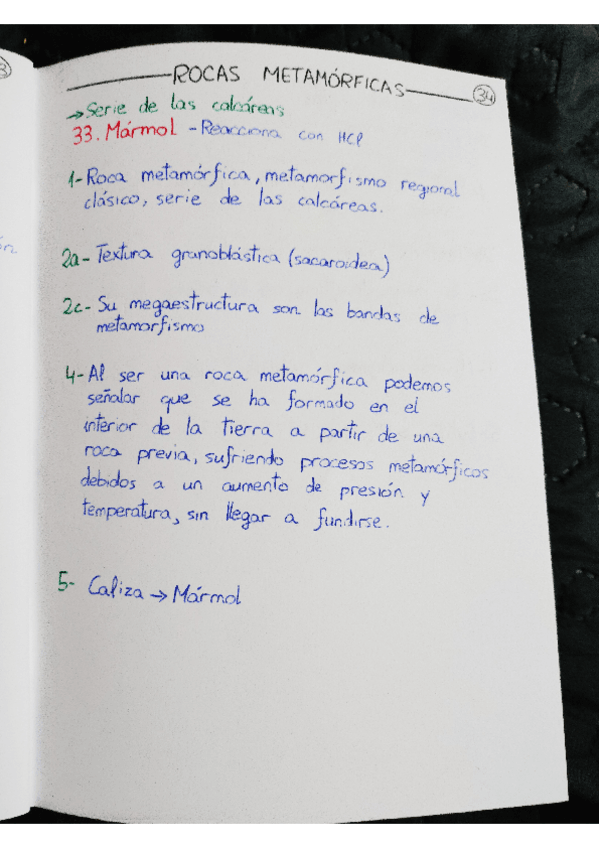 ROCAS METAMÓRFICAS
34
→ Serie de las calcáreas
33. Mármol - Reacciona con HCl
1- Roca metamórfica, metamorfismo regional
clásico, serie de las calcáreas.
2a- Textura granoblástica (sacaroidea)
2c- Su megaestructura son las bandas de
metamorfismo
4- Al ser una roca metamórfica podemos
señalar que se ha formado en el
interior de la tierra a partir de una
roca previa, sufriendo procesos metamórficos
debidos a un aumento de presión y
temperatura, sin llegar a fundirse.
5- Caliza → Mármol